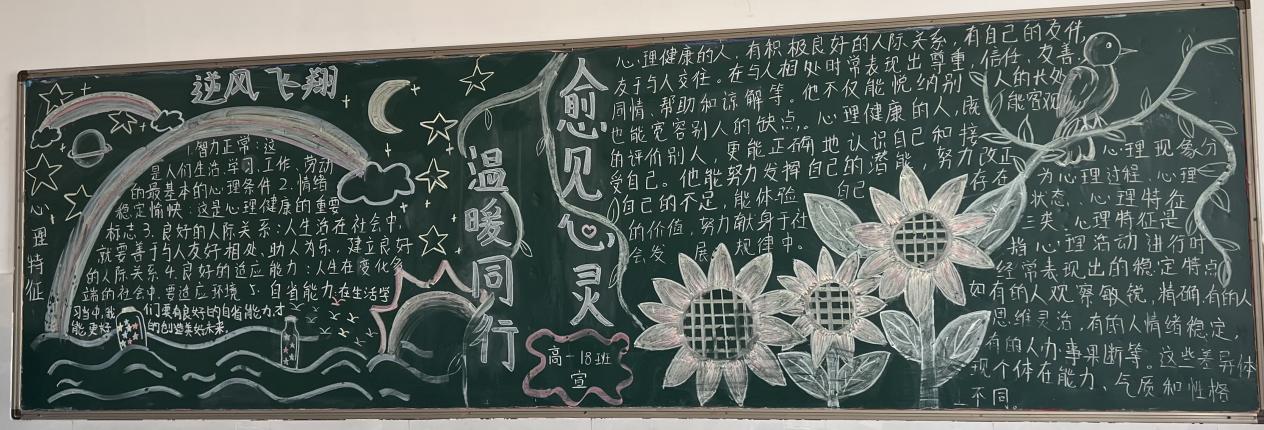 逆风飞翔
心理特征
1.智力正常：这
是人们生活、学习、工作、劳动
的最基本的心理条件 2.情绪
稳定愉快：这是心理健康的重要
标志.3.良好的人际关系：人生活在社会中，
就要善于与人友好相处、助人为乐，建立良好
的人际关系 4.良好的适应能力：人生在变化多
端的社会中，要适应环境 5.自省能力，在生活学
习当中，我们要有良好的自省能力，才
能更好的创造美好未来。
温暖同行
愈见心灵
高一18班
宣
心理健康的人，有积极良好的人际关系，有自己的友伴，
友于与人交往。在与人相处时常表现出尊重，信任、友善，
同情、帮助和谅解等。他不仅能悦纳别人的长处，
也能宽容别人的缺点。心理健康的人，既能客观
的评价别人，更能正确地认识自己和接
受自己。他能努力发挥自己的潜能，努力改正
自己的不足，能体验自己存在
的价值，努力献身于社
会发展规律中。
心理现象分
为心理过程、心理
状态、心理特征
三类。心理特征是
指心理活动进行时
经常表现出的稳定特点
如有的人观察敏锐，精确，有的人
思维灵活，有的人情绪稳定，
有的人办事果断等。这些差异体
现个体在能力、气质和性格
上不同。